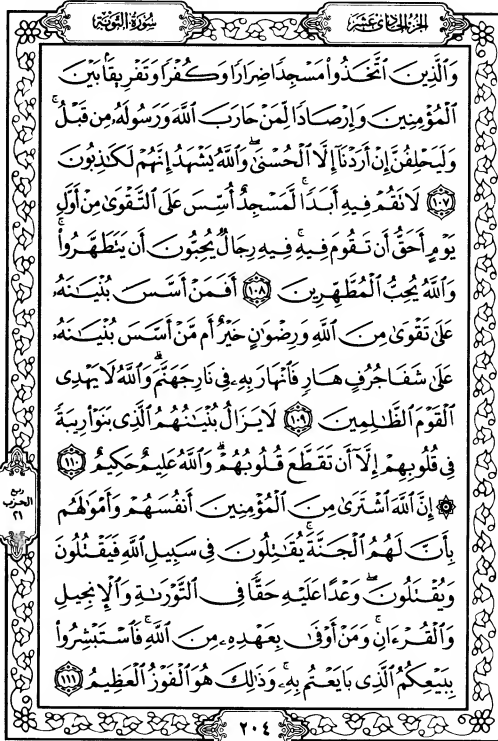 الجزء الحادي عشر
سورة التوبة
وَالَّذِينَ اتَّخَذُوا مَسْجِدًا ضِرَارًا وَكُفْرًا وَتَفْرِيقًا بَيْنَ
الْمُؤْمِنِينَ وَإِرْصَادًا لِّمَنْ حَارَبَ اللَّهَ وَرَسُولَهُ مِن قَبْلُ ۚ
وَلَيَحْلِفُنَّ إِنْ أَرَدْنَا إِلَّا الْحُسْنَىٰ ۖ وَاللَّهُ يَشْهَدُ إِنَّهُمْ لَكَاذِبُونَ
١٠٧ لَا تَقُمْ فِيهِ أَبَدًا ۚ لَّمَسْجِدٌ أُسِّسَ عَلَى التَّقْوَىٰ مِنْ أَوَّلِ
يَوْمٍ أَحَقُّ أَن تَقُومَ فِيهِ ۚ فِيهِ رِجَالٌ يُحِبُّونَ أَن يَتَطَهَّرُوا ۚ
وَاللَّهُ يُحِبُّ الْمُطَّهِّرِينَ ١٠٨ أَفَمَنْ أَسَّسَ بُنْيَانَهُ
عَلَىٰ تَقْوَىٰ مِنَ اللَّهِ وَرِضْوَانٍ خَيْرٌ أَم مَّنْ أَسَّسَ بُنْيَانَهُ
عَلَىٰ شَفَا جُرُفٍ هَارٍ فَانْهَارَ بِهِ فِي نَارِ جَهَنَّمَ ۗ وَاللَّهُ لَا يَهْدِي
الْقَوْمَ الظَّالِمِينَ ١٠٩ لَا يَزَالُ بُنْيَانُهُمُ الَّذِي بَنَوْا رِيبَةً
فِي قُلُوبِهِمْ إِلَّا أَن تَقَطَّعَ قُلُوبُهُمْ ۗ وَاللَّهُ عَلِيمٌ حَكِيمٌ ١١٠
۞ إِنَّ اللَّهَ اشْتَرَىٰ مِنَ الْمُؤْمِنِينَ أَنفُسَهُمْ وَأَمْوَالَهُم
بِأَنَّ لَهُمُ الْجَنَّةَ ۚ يُقَاتِلُونَ فِي سَبِيلِ اللَّهِ فَيَقْتُلُونَ
وَيُقْتَلُونَ ۖ وَعْدًا عَلَيْهِ حَقًّا فِي التَّوْرَاةِ وَالْإِنجِيلِ
وَالْقُرْءَانِ ۚ وَمَنْ أَوْفَىٰ بِعَهْدِهِ مِنَ اللَّهِ ۚ فَاسْتَبْشِرُوا
بِبَيْعِكُمُ الَّذِي بَايَعْتُم بِهِ ۚ وَذَٰلِكَ هُوَ الْفَوْزُ الْعَظِيمُ ١١١
ربع
الحزب
٢١
٢٠٤